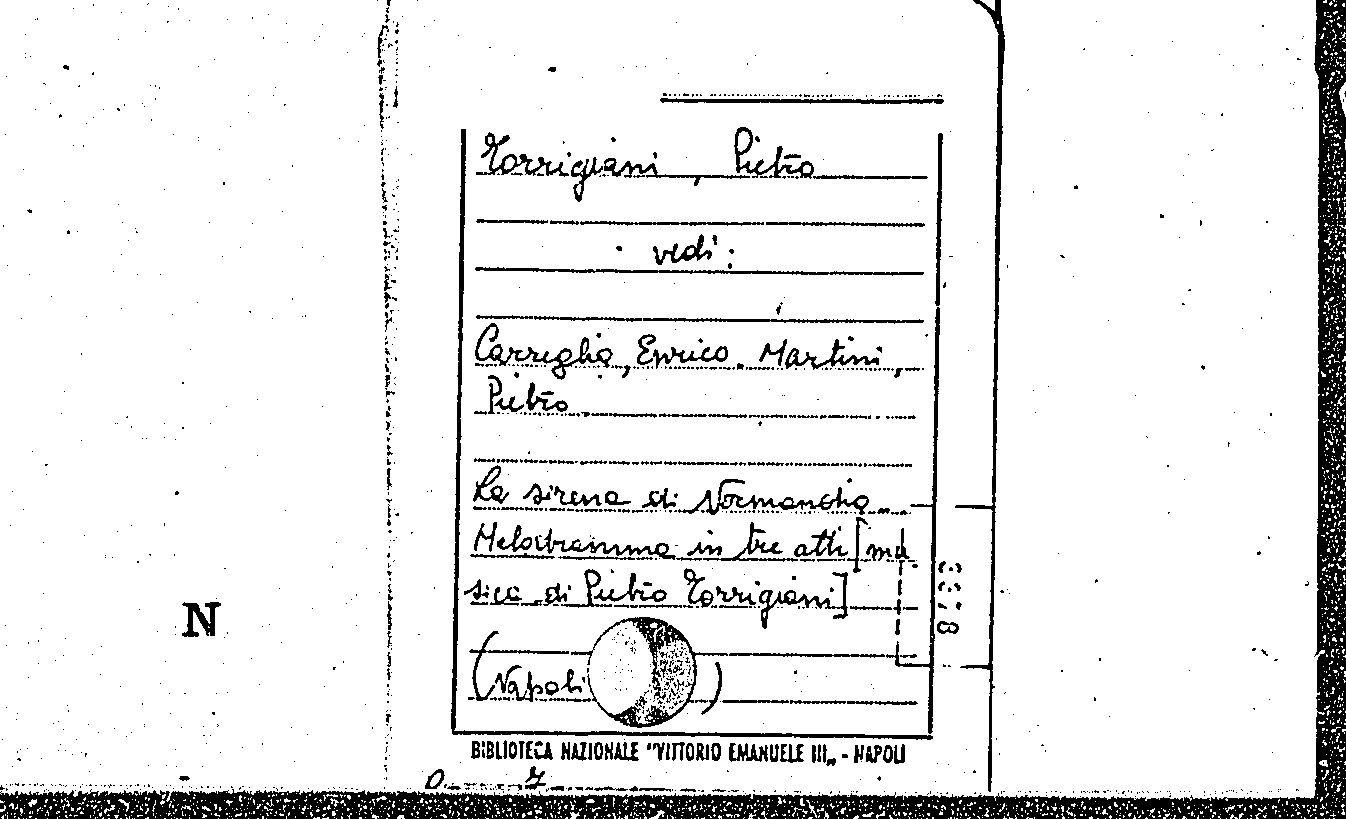 Torrigiani, Pietro
vedi:
Carreglia, Enrico. Martini,
Pietro
La sirena di Normandia...
Melodramma in tre atti [mu
sica di Pietro Torrigiani]
(Napoli )
N
BIBLIOTECA NAZIONALE "VITTORIO EMANUELE III„ - NAPOLI